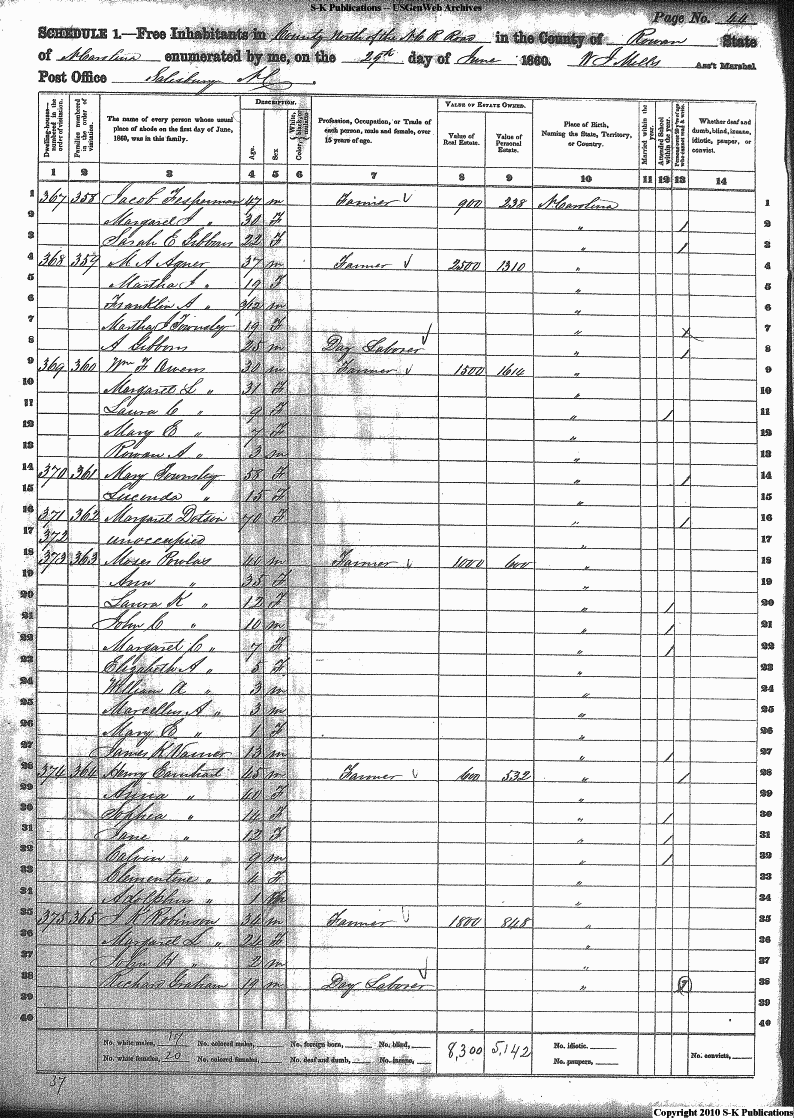 S-K Publications -- USGenWeb Archives
Page No. 44
SCHEDULE 1.—Free Inhabitants in County North of the N.C. R Road in the County of Rowan State
of N Carolina enumerated by me, on the 29th day of June 1860. W J Mills Ass't Marshal
Post Office Salisbury N C.
Dwelling-houses— numbered in the order of visitation. Families numbered in the order of visitation. The name of every person whose usual place of abode on the first day of June, 1860, was in this family. DESCRIPTION. Age. Sex. Color, Profession, Occupation, or Trade of each person, male and female, over 15 years of age. VALUE OF ESTATE OWNED. Value of Real Estate. Value of Personal Estate. Place of Birth, Naming the State, Territory, or Country. Married within the year. Attended School within the year. Whether deaf and dumb, blind, insane, idiotic, pauper, or convict.
1 2 3 4 5 6 7 8 9 10 11 12 13 14
1 367 358 Jacob Fesperman 47 m Farmer √ 900 238 N Carolina 1
2 Margaret J " 30 F " / 2
3 Sarah E Gibbons 22 F " / 3
4 368 359 M A Agner 37 m Farmer √ 2500 1310 " 4
5 Martha J " 19 F " 5
6 Franklin A " 9/12 m " 6
7 Martha J Townsley 19 F " x 7
8 A Gibbons 25 m Day Laborer √ " / 8
9 369 360 Wm F Owens 30 m Farmer √ 1500 1614 " 9
10 Margaret L " 31 F " 10
11 Laura C " 9 F " / 11
12 Mary E " 7 F " 12
13 Rowan A " 3 m " 13
14 370 361 Mary Townsley 58 F " / 14
15 Lucenda " 15 F " 15
16 371 362 Margaret Dotson 70 F " / 16
17 372 unoccupied " 17
18 373 363 Moses Powlas 40 m Farmer √ 1000 600 " 18
19 Ann " 35 F " 19
20 Laura K " 12 F " / 20
21 John C " 10 m " / 21
22 Margaret C " 7 F " / 22
23 Elizabeth A " 5 F " 23
24 William A " 3 m " 24
25 Marcellus A " 3 m " 25
26 Mary E " 1 F " 26
27 James K Varner 13 m " / 27
28 374 364 Henry Earnhart 45 m Farmer √ 600 532 " / 28
29 Anna " 40 F " 29
30 Sophia " 14 F " / 30
31 Jane " 12 F " / 31
32 Calvin " 9 m " / 32
33 Clementine " 4 F " 33
34 Adolphus " 1 m " 34
35 375 365 J K Robinson 34 m Farmer √ 1800 848 " 35
36 Margaret L " 24 F " 36
37 John H " 2 m " 37
38 Richard Graham 19 m Day Laborer √ " 38
39 39
40 40
No. white males, No. colored males, No. foreign born, No. blind, 8,300 5,142 No. idiotic.
No. white females, 20 No. colored females, No. deaf and dumb, No. insane, No. paupers, No. convicts,
37
Copyright 2010 S-K Publications